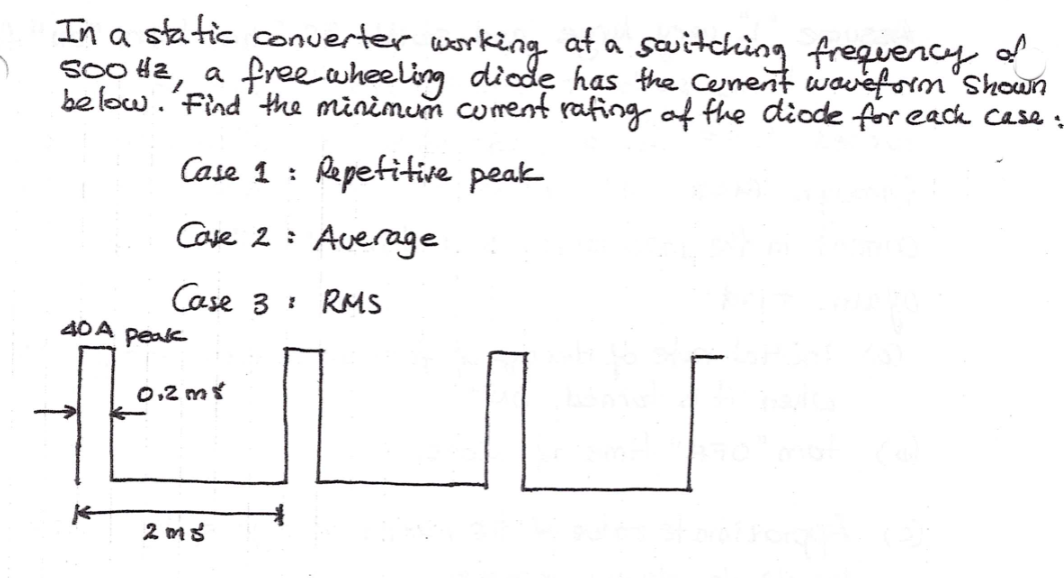 In a static converter working at a switching frequency of
500 Hz, a freewheeling diode has the current waveform shown
below. Find the minimum current rating of the diode for each case:
Case 1 : Repetitive peak
Case 2 : Average
Case 3 : RMS
40A peak
0.2 ms
2 ms